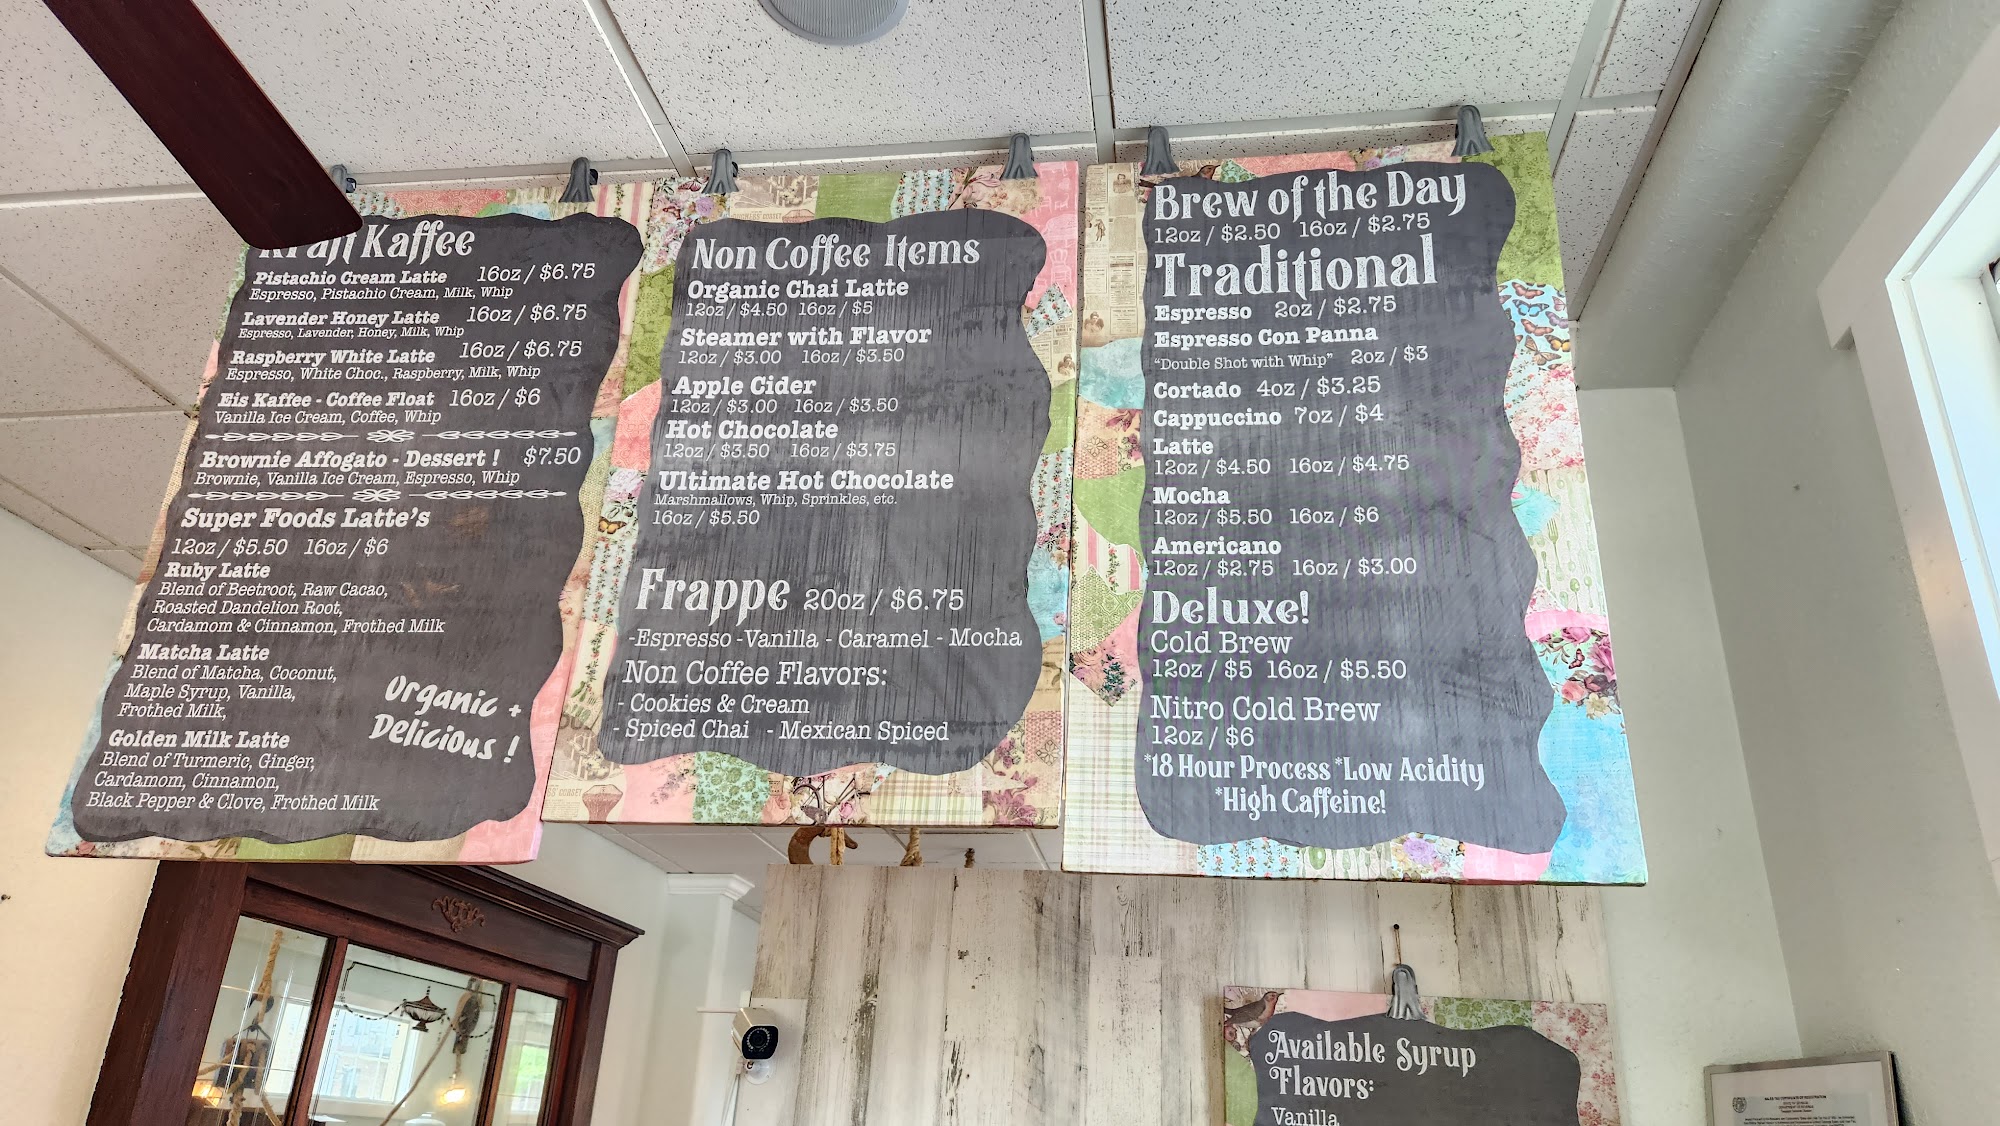 Kraft Kaffee
Pistachio Cream Latte 16oz / $6.75
Espresso, Pistachio Cream, Milk, Whip
Lavender Honey Latte 16oz / $6.75
Espresso, Lavender, Honey, Milk, Whip
Raspberry White Latte 16oz / $6.75
Espresso, White Choc., Raspberry, Milk, Whip
Eis Kaffee - Coffee Float 16oz / $6
Vanilla Ice Cream, Coffee, Whip
Brownie Affogato - Dessert ! $7.50
Brownie, Vanilla Ice Cream, Espresso, Whip
Super Foods Latte's
12oz / $5.50 16oz / $6
Ruby Latte
Blend of Beetroot, Raw Cacao,
Roasted Dandelion Root,
Cardamom & Cinnamon, Frothed Milk
Matcha Latte
Blend of Matcha, Coconut,
Maple Syrup, Vanilla,
Frothed Milk,
Golden Milk Latte
Blend of Turmeric, Ginger,
Cardamom, Cinnamon,
Black Pepper & Clove, Frothed Milk
Organic +
Delicious !
Non Coffee Items
Organic Chai Latte
12oz / $4.50 16oz / $5
Steamer with Flavor
12oz / $3.00 16oz / $3.50
Apple Cider
12oz / $3.00 16oz / $3.50
Hot Chocolate
12oz / $3.50 16oz / $3.75
Ultimate Hot Chocolate
Marshmallows, Whip, Sprinkles, etc.
16oz / $5.50
Frappe 20oz / $6.75
-Espresso -Vanilla - Caramel - Mocha
Non Coffee Flavors:
- Cookies & Cream
- Spiced Chai - Mexican Spiced
Brew of the Day
12oz / $2.50 16oz / $2.75
Traditional
Espresso 2oz / $2.75
Espresso Con Panna
"Double Shot with Whip" 2oz / $3
Cortado 4oz / $3.25
Cappuccino 7oz / $4
Latte
12oz / $4.50 16oz / $4.75
Mocha
12oz / $5.50 16oz / $6
Americano
12oz / $2.75 16oz / $3.00
Deluxe!
Cold Brew
12oz / $5 16oz / $5.50
Nitro Cold Brew
12oz / $6
*18 Hour Process *Low Acidity
*High Caffeine!
Available Syrup
Flavors:
Vanilla